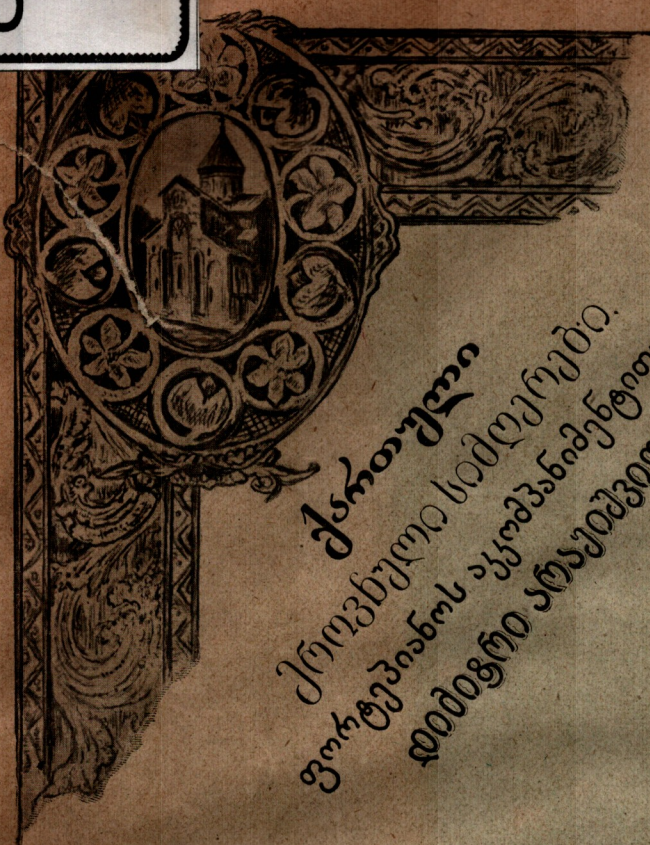 ქართული
ეროვნული სიმღერები.
ფორტეპიანოს აკკომპანიმენტით
დიმიტრი არაყიშვილ